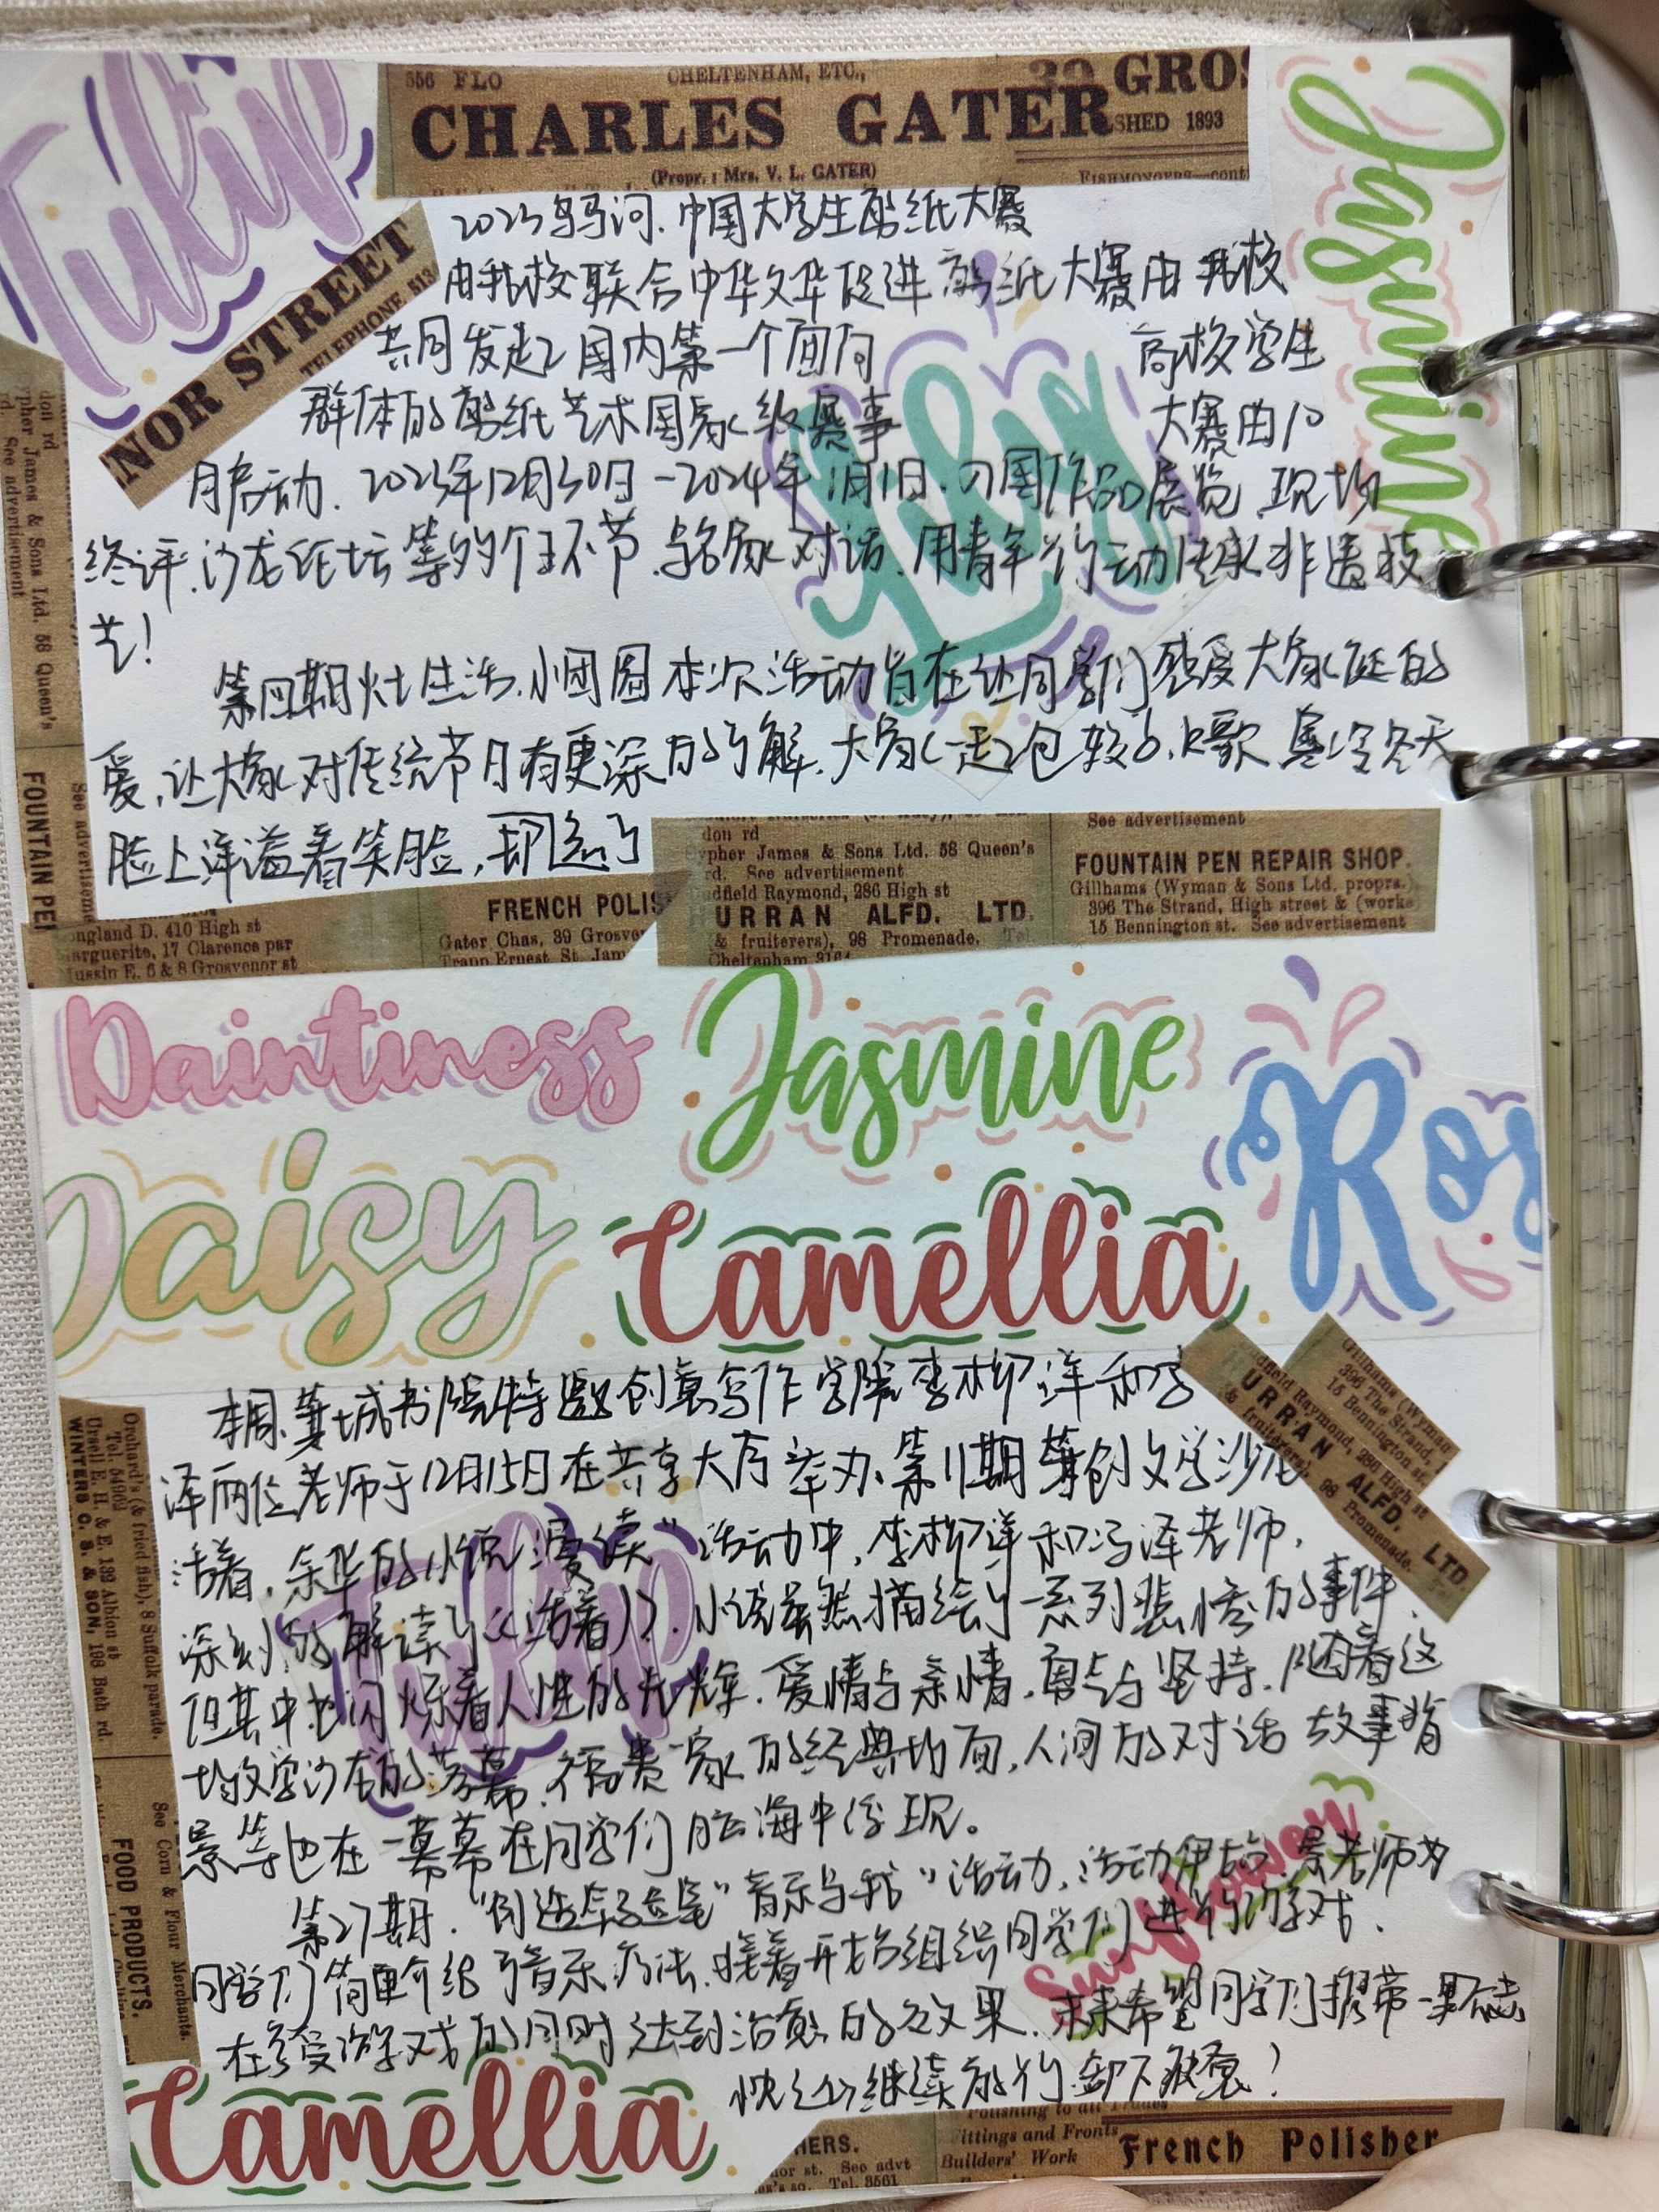 Tulip
556 FLO
CHELTENHAM, ETC.,
CHARLES GATER
GROS
SHED 1893
(Propr.: Mrs. V. L. GATER)
FISHMONGERS—cont
Jasmine
NOR STREET
TELEPHONE 513
2023乌马河.中国大学生剪纸大赛
由我校联合中华文华促进剪纸大赛由我校
共同发起国内第一个面向 高校学生
群体的剪纸艺术国家级赛事 大赛由10
月启动.2023年12月30日-2024年1月1日.
作品展览.现场
终评.沙龙论坛等
环节.与名家对话.用青年行动传承非遗技
艺!
Lily
第四期灶生活.小团圆本次活动旨在让同学们感受大家庭的
爱,让大家对传统节日有更深的了解.大家一起包饺子,K歌 寒冷冬天
脸上洋溢着笑脸,
don rd
ypher James & Sons Ltd. 58 Queen's
rd. See advertisement
FOUNTAIN PEN
See advertisement
don rd
ypher James & Sons Ltd. 58 Queen's
rd. See advertisement
adfield Raymond, 286 High st
URRAN ALFD. LTD.
& fruiterers), 98 Promenade. Tel.
Cheltenham 3164
See advertisement
FOUNTAIN PEN REPAIR SHOP.
Gillhams (Wyman & Sons Ltd. proprs.)
396 The Strand, High street & (works
15 Bennington st. See advertisement
ngland D. 410 High st
arguerite, 17 Clarence par
ussin E. 6 & 8 Grosvenor st
FRENCH POLIS
Gater Chas, 39 Grosve
Trapp Ernest St. Jam
Daintiness
Jasmine
Ros
Daisy
Camellia
本周.萁城书院特邀创意写作学院李柳洋和冯
泽两位老师于12月15日在共享大厅举办.第11期萁创文学沙龙
活着,余华的小说漫读"活动中,李柳洋和冯泽老师,
深刻的解读了《活着》.小说虽然描绘了一系列悲惨的事件,
但其中也闪烁着人性的光辉.爱情与亲情,勇气与坚持.随着这
场文学沙龙的落幕.福贵一家的经典场面,人间的对话 故事背
景等也在一幕幕在同学们脑海中浮现。
第27期."创造幸福.遇见"音乐与我"活动,活动伊始.景老师为
同学们简单介绍了音乐疗法.接着开始组织同学们进行游戏.
在享受游戏的同时达到治愈的效果.未来希望同学们携带一
继续前行.卸下疲惫!
Gillhams (Wyman
396 The Strand,
15 Bennington st.
dfield Raymond, 286 High st
URRAN ALFD. LTD.
& fruiterers), 98 Promenade.
Tulip
Sunflower
Orchard's (& fried fish), 8 Suffolk parade.
Ursell E. H. & E. 199 Albion st
WINTERS C. S. & SON, 198 Bath rd.
See Corn & Flour Merchants.
FOOD PRODUCTS.
Camellia
HERS.
nor st. See advt
Tel. 3561
Polishing to all Trades
Fittings and Fronts
Builders' Work
French Polisher